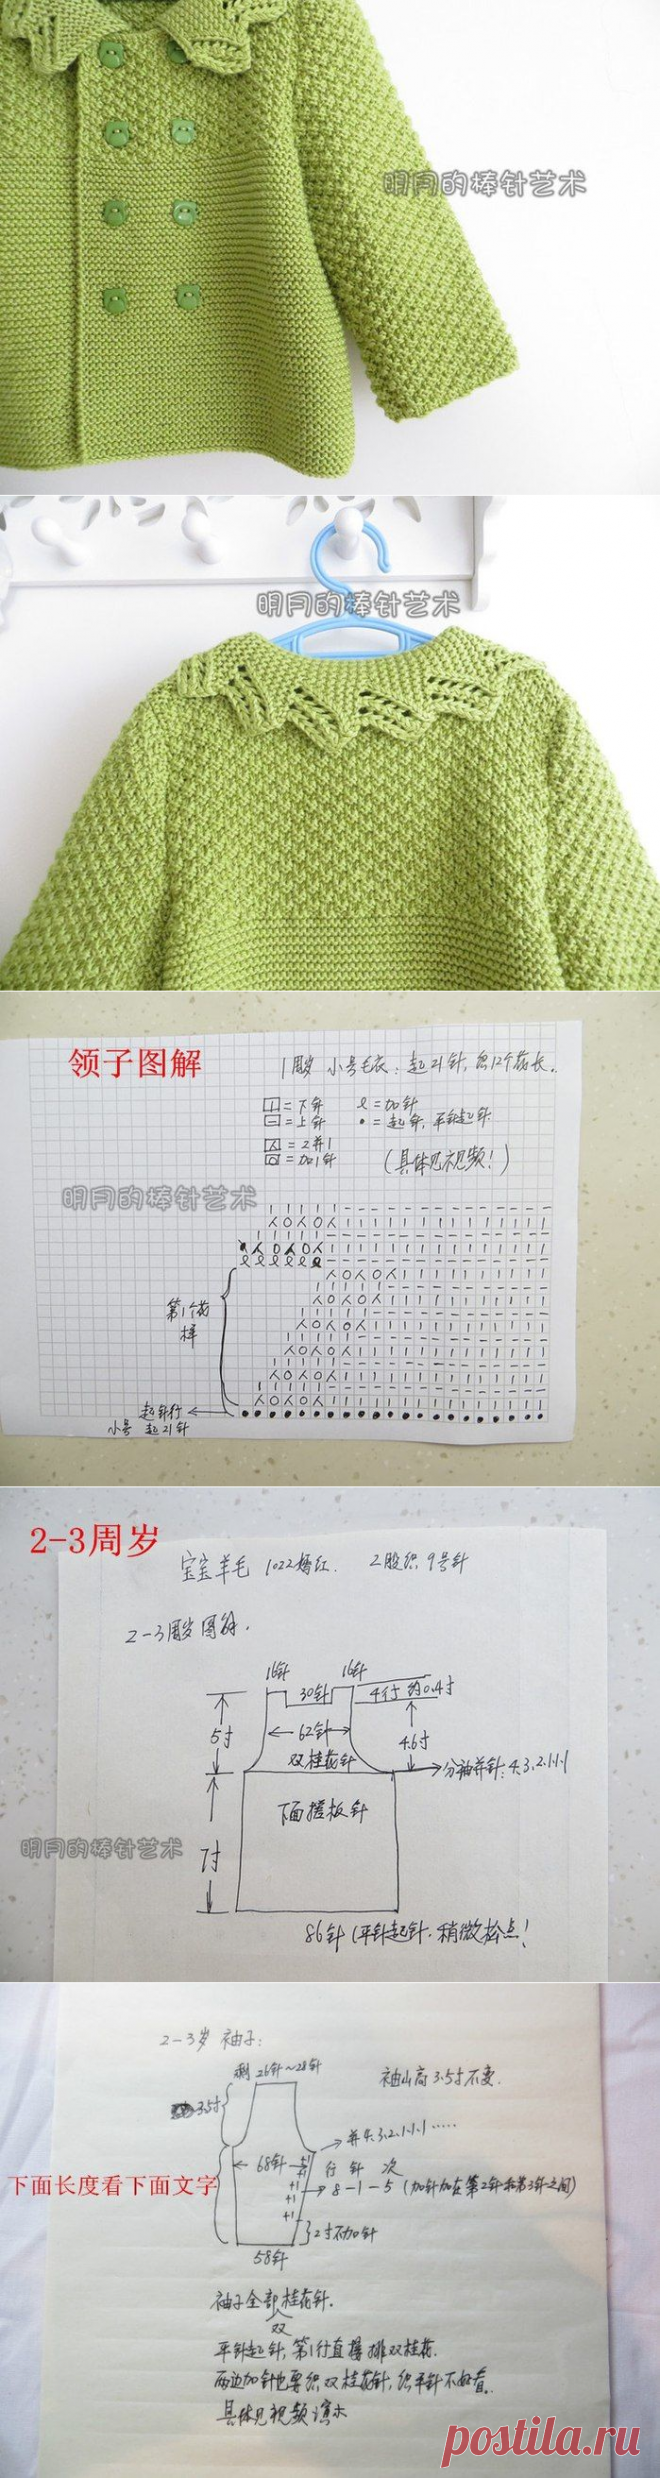 明月的棒针艺术
明月的棒针艺术
领子图解
1周岁 小号毛衣：起21针，织12个花长。
| = 下针
— = 上针
人 = 2并1
O = 加1针
ℓ = 加针
• = 起针，平针起针
（具体见视频！）
明月的棒针艺术
第1个花样
起针行
小号 起21针
2-3周岁
宝宝羊毛 1022 2股织 9号针
2-3周岁图解.
16针 16针
30针
4行 约0.4寸
5寸
62针
4.6寸
双桂花针
分袖并针：4.3.2.1.1.1
下面搓板针
7寸
明月的棒针艺术
86针（平针起针.稍微松点！
2-3岁 袖子：
剩 26针~28针
袖山高3.5寸不变.
3.5寸
并4.3.2.1.1.1……
68针
+1
+1
行 针 次
下面长度看下面文字
+1
8-1-5（加针加在第2针和第3针之间）
+1
+1
2寸不加针
58针
袖子全部双桂花针.
平针起针，第1行直接排双桂花.
两边加针也要织双桂花针，织平针不好看。
具体见视频演示
postila.ru